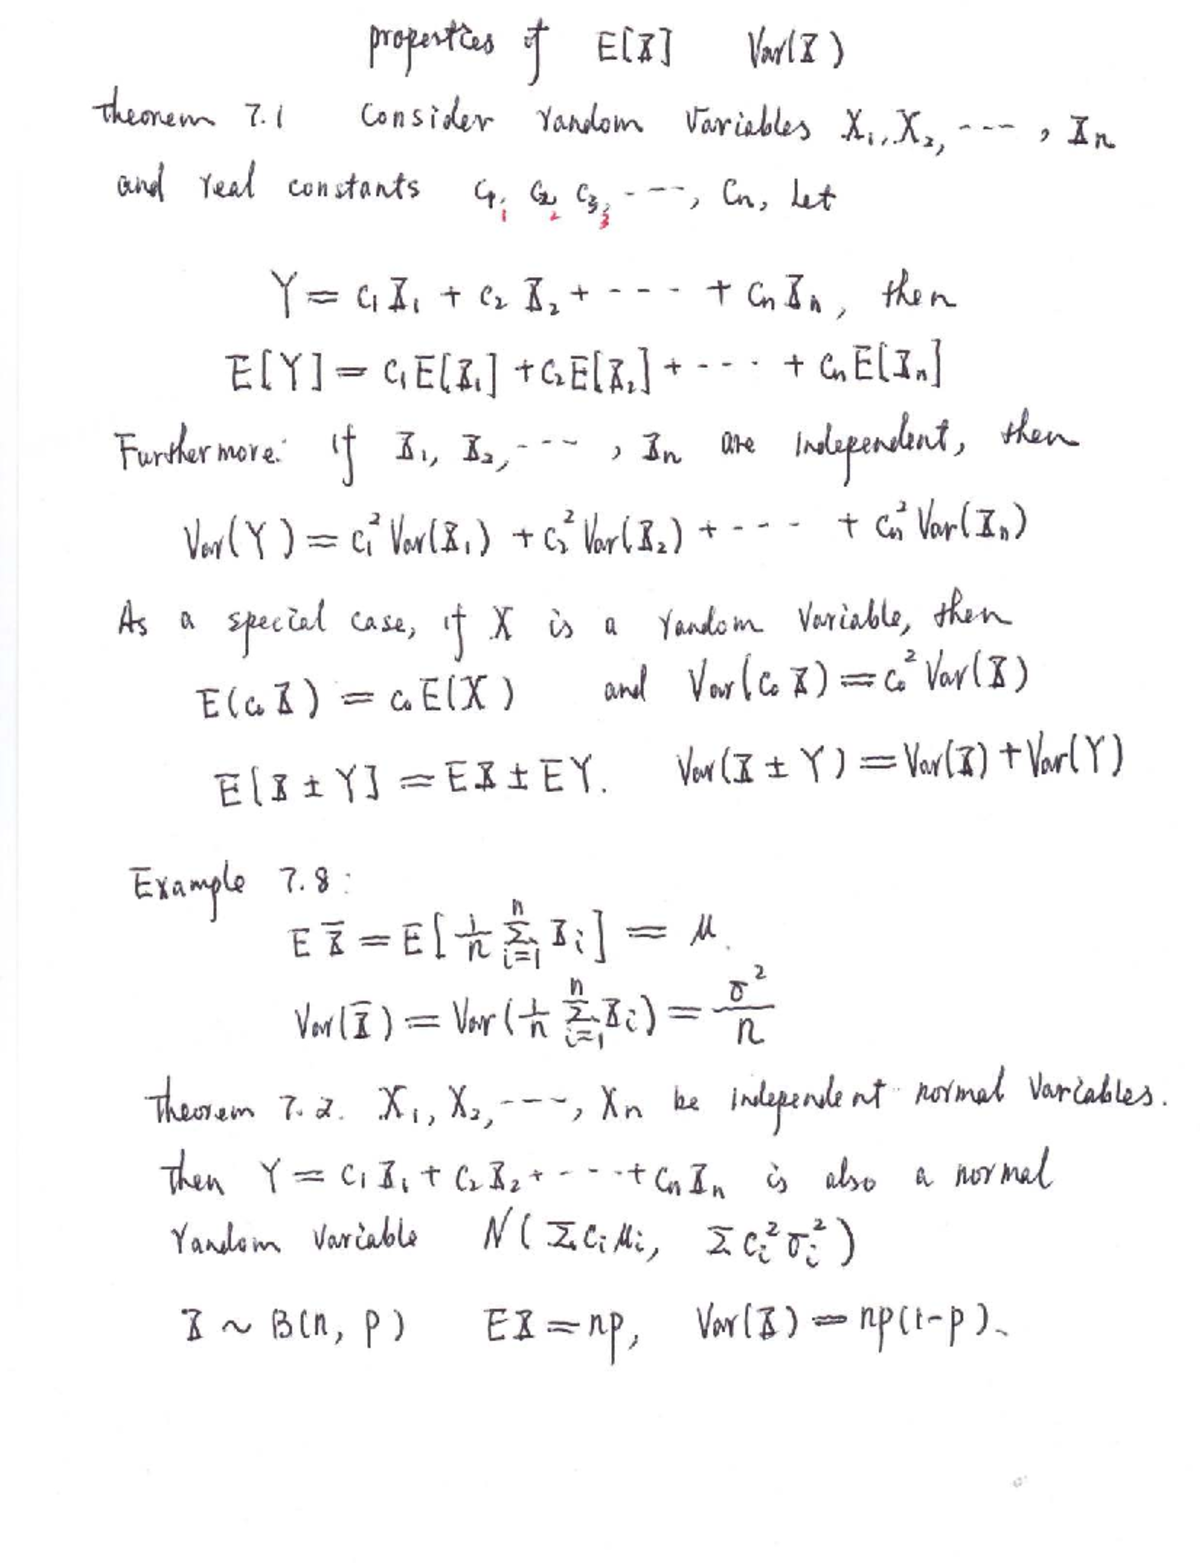 properties of E[X] Var(X)
Theorem 7.1 Consider random variables X₁, X₂, ---, Xₙ
and real constants c₁, c₂, c₃, ---, cₙ, Let
Y = c₁X₁ + c₂X₂ + ---- + cₙXₙ, then
E[Y] = c₁E[X₁] + c₂E[X₂] + ---- + cₙE[Xₙ]
Furthermore: if X₁, X₂, ---, Xₙ are independent, then
Var(Y) = c₁²Var(X₁) + c₂²Var(X₂) + ---- + cₙ²Var(Xₙ)
As a special case, if X is a random variable, then
E(c₀X) = c₀E(X) and Var(c₀X) = c₀²Var(X)
E[X ± Y] = EX ± EY. Var(X ± Y) = Var(X) + Var(Y)
Example 7.8:
E X̄ = E[1/n Σᵢ₌₁ⁿ Xᵢ] = μ.
Var(X̄) = Var(1/n Σᵢ₌₁ⁿ Xᵢ) = σ²/n
Theorem 7.2. X₁, X₂, ---, Xₙ be independent normal variables.
then Y = c₁X₁ + c₂X₂ + ---- + cₙXₙ is also a normal
random variable N(Σcᵢμᵢ, Σcᵢ²σᵢ²)
X ~ B(n, p) EX = np, Var(X) = np(1-p).